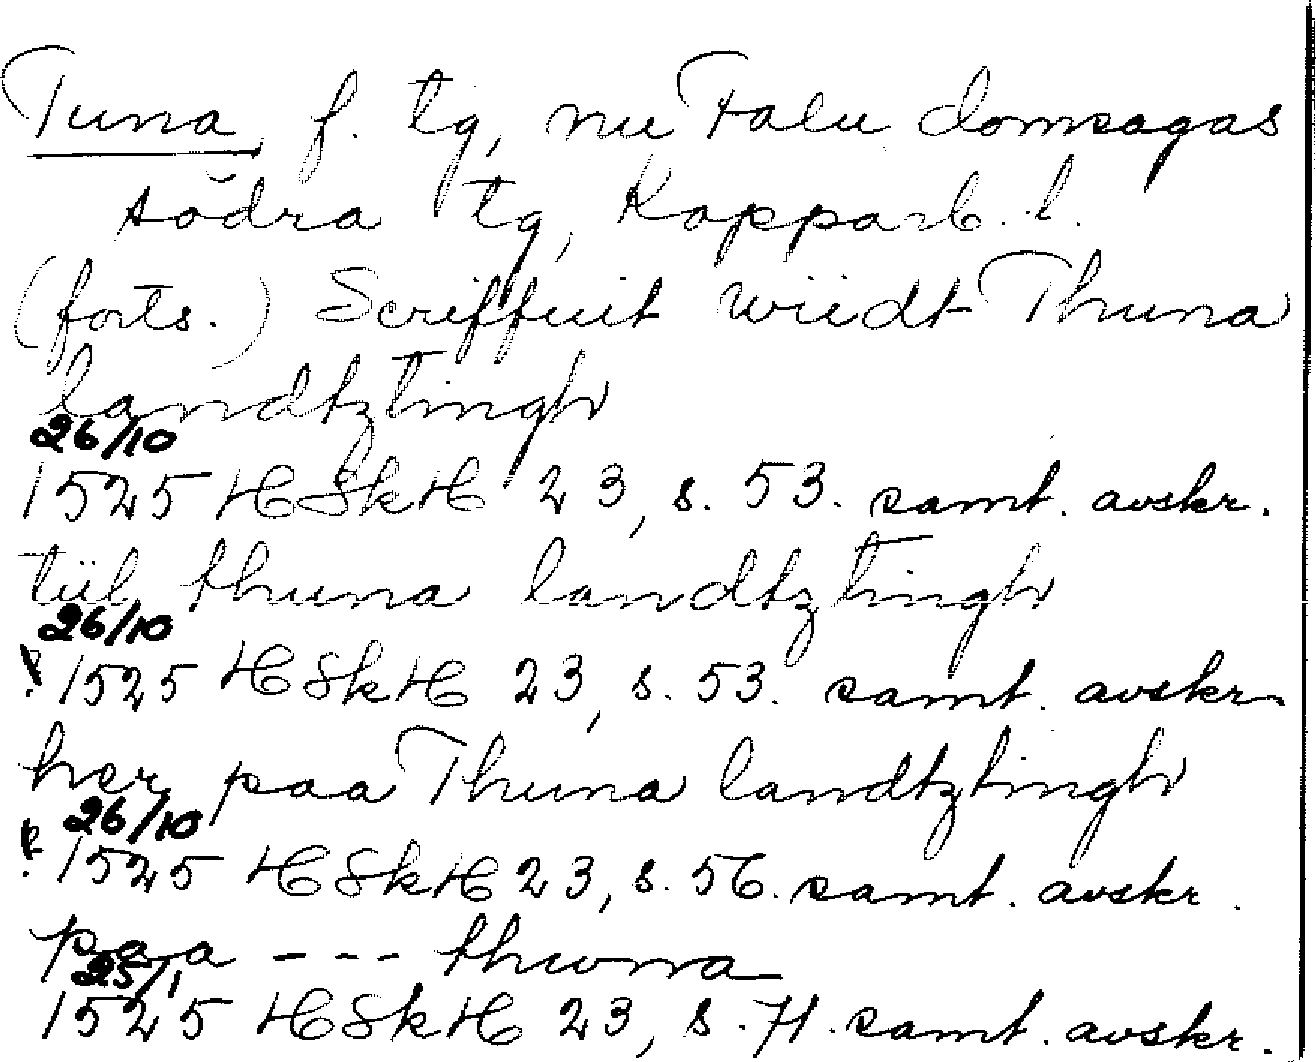 Tuna, f. tg, nu Falu domsagas
södra tg, Kopparb. l.
(forts.) Scriffuit wiidt Thuna
landtztingh
26/10
1525 HSkH 23, s. 53. samt. avskr.
tiil thuna landtztingh
26/10
1525 HSkH 23, s. 53. samt. avskr.
her paa Thuna landtztingh
26/10
1525 HSkH 23, s. 56. samt. avskr.
paa --- thwna
25/1
1525 HSkH 23, s. 71. samt. avskr.